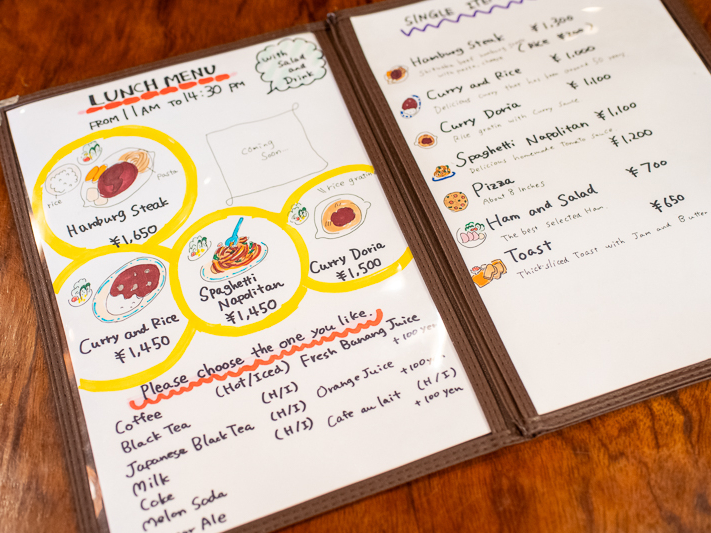 LUNCH MENU
FROM 11AM TO 14:30 PM
with
Salad
and
Drink
rice
pasta
Hamburg Steak
¥1,650
Coming
Soon..
Curry and Rice
¥1,450
Spaghetti
Napolitan
¥1,450
rice gratin
Curry Doria
¥1,500
Please choose the one you like.
Coffee (Hot/Iced)
Black Tea (H/I)
Japanese Black Tea (H/I)
Milk (H/I)
Coke
Melon Soda
Ale
Fresh Banana Juice
+100 yen
Orange Juice +100 yen
Cafe au lait (H/I)
+100 yen
SINGLE
Hamburg Steak ¥1,300
Curry and Rice ¥1,000
Delicious curry that has been around 50 years
Curry Doria ¥1,100
Rice gratin with Curry Sauce
Spaghetti Napolitan ¥1,100
Delicious homemade tomato sauce
Pizza ¥1,200
About 8 inches
Ham and Salad ¥700
The best selected Ham.
Toast ¥650
Thick sliced Toast with Jam and Butter